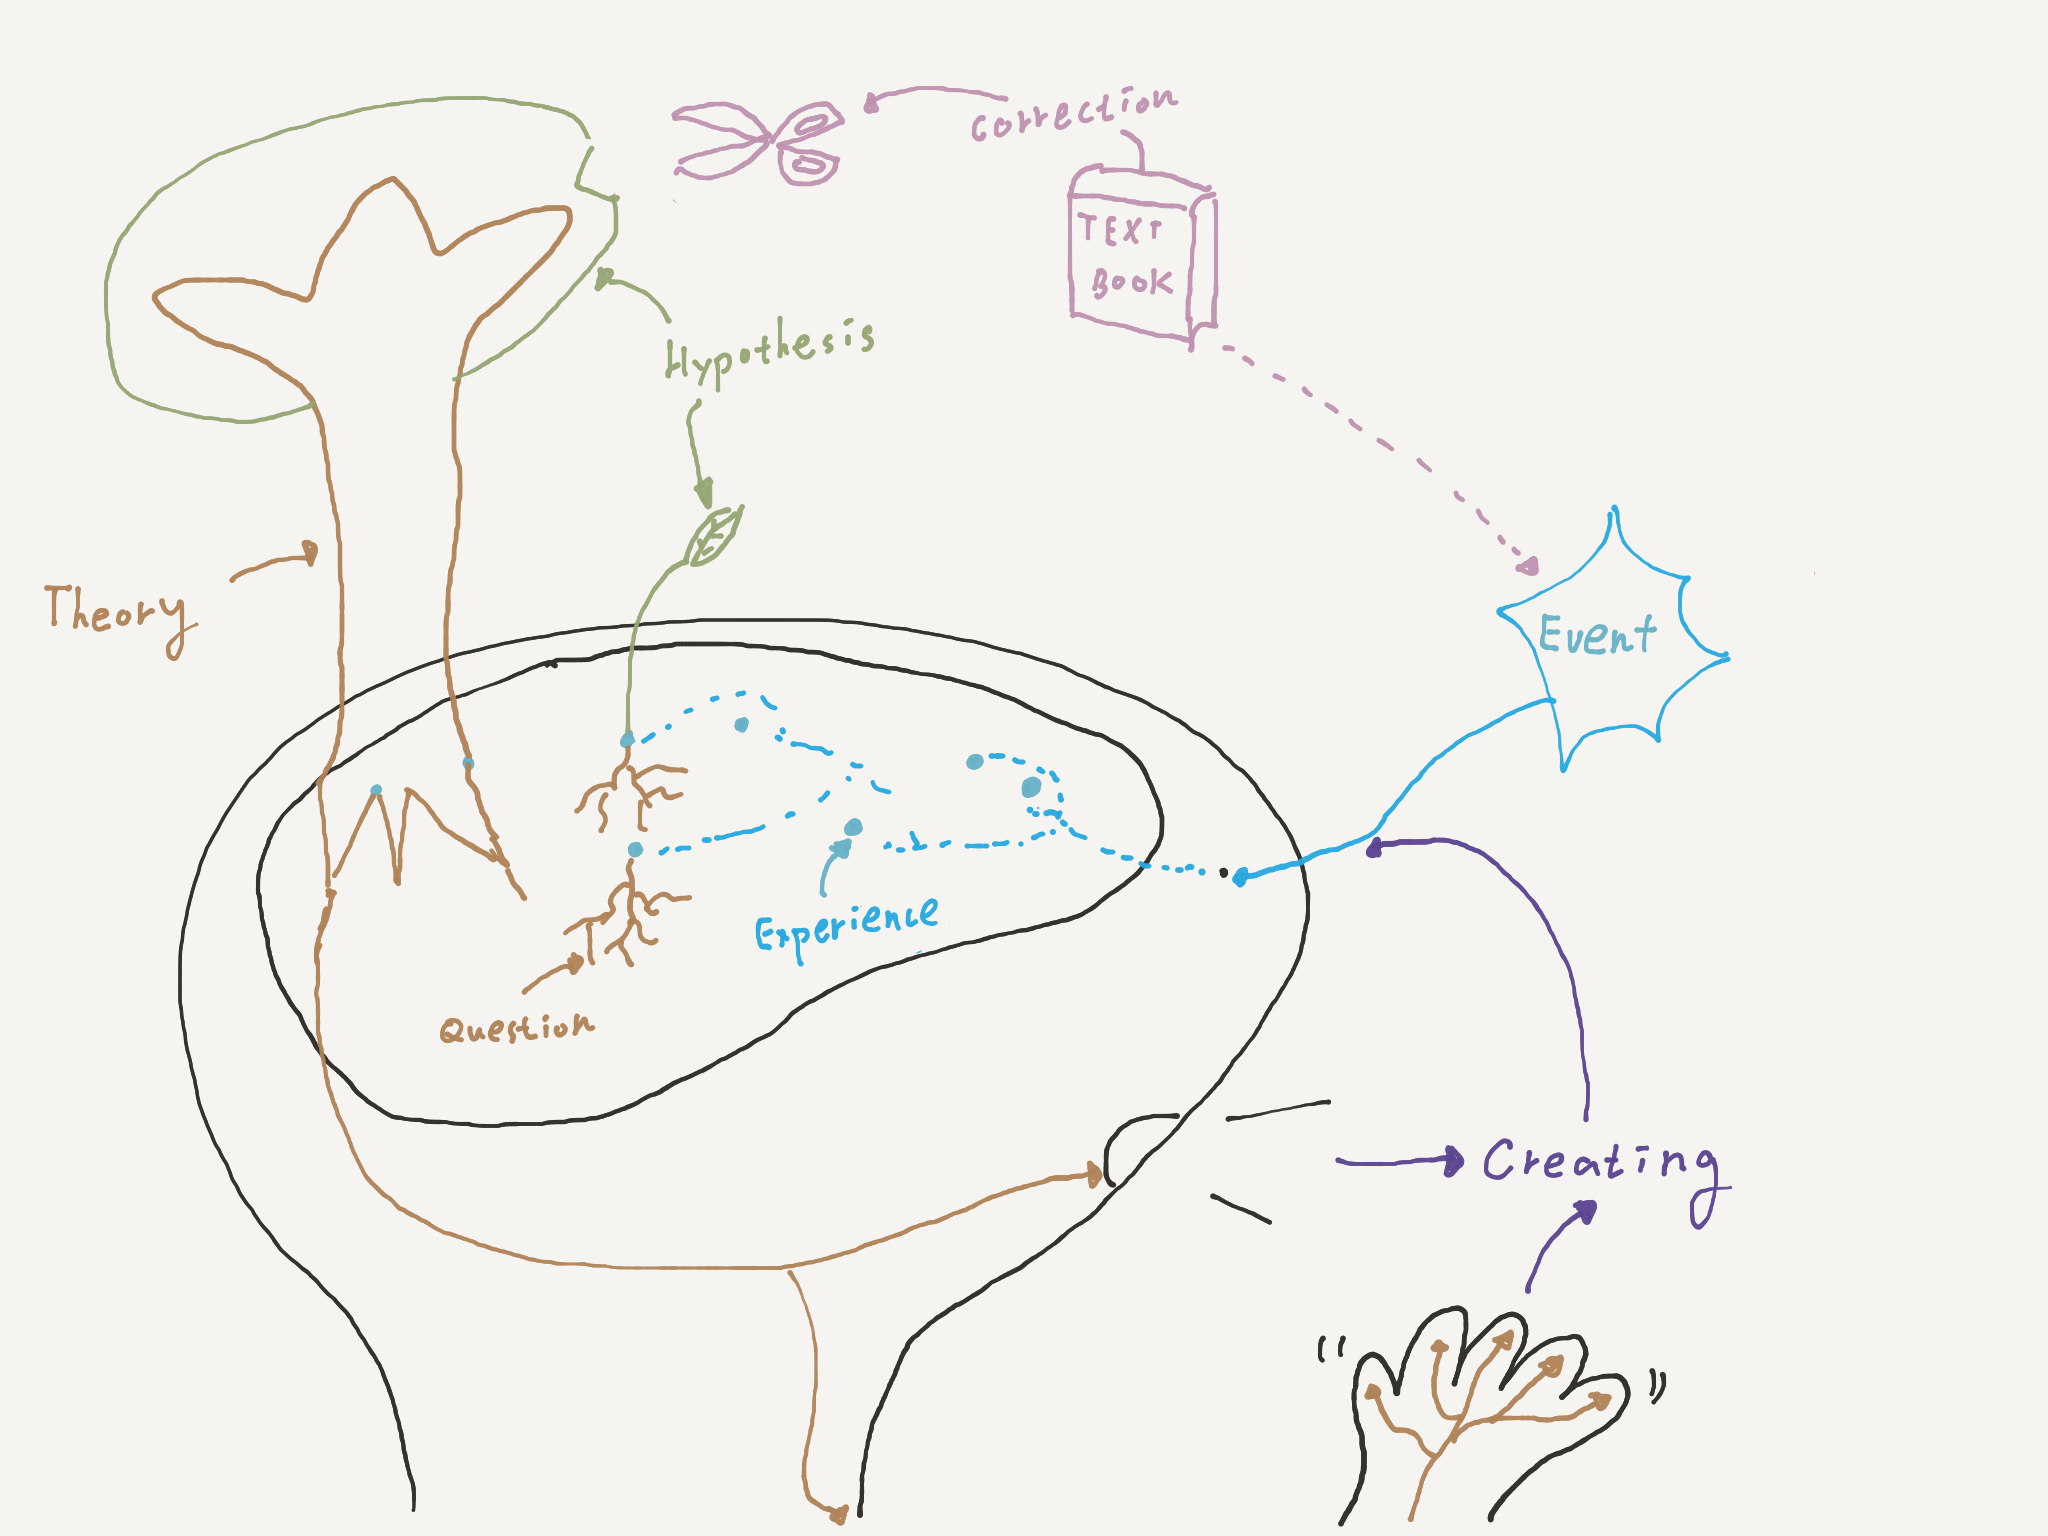 correction
TEXT
BOOK
Hypothesis
Theory
Event
Experience
Question
Creating